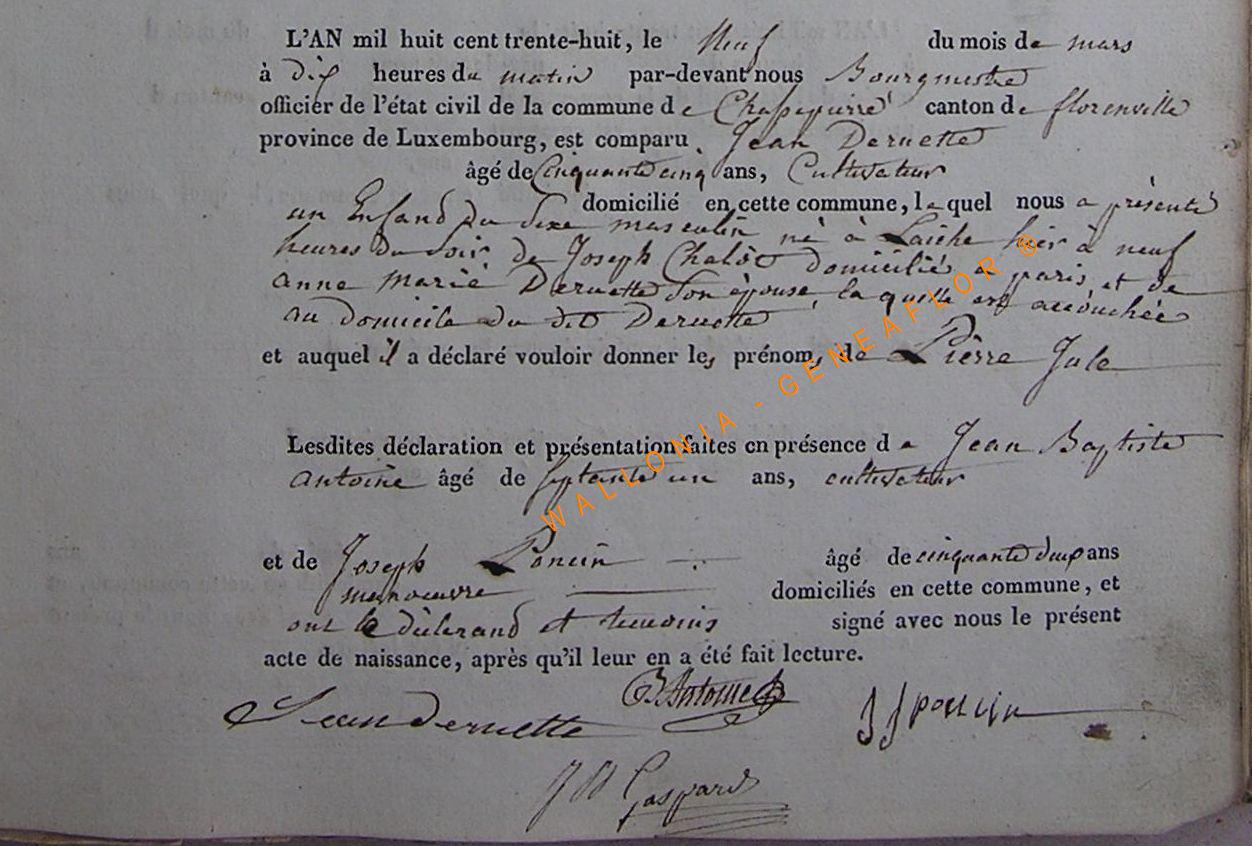 L'AN mil huit cent trente-huit, le Neuf du mois de mars
à dix heures du matin par-devant nous Bourgmestre
officier de l'état civil de la commune de Chassepierre canton de florenville
province de Luxembourg, est comparu Jean Deruette
âgé de Cinquante cinq ans, Cultivateur
domicilié en cette commune, le quel nous a présenté
un Enfand du Sexe masculin né à Laiche hier à neuf
heures du soir de Joseph Chalot domicilié a paris, et de
anne Marie Deruette Son épouse, la quelle est accouchée
au domicile du dit Deruette
et auquel il a déclaré vouloir donner les prénoms de Pierre Jule
Lesdites déclaration et présentation faites en présence de Jean Baptiste
antoine âgé de septante un ans, cultivateur
et de Joseph Poncin âgé de cinquante deux ans
manoeuvre domiciliés en cette commune, et
ont le déclarand et temoins signé avec nous le présent
acte de naissance, après qu'il leur en a été fait lecture.
JB Antoine
Jean deruette JJ poncin
J B Gaspard
WALLONIA - GENEAFLOR ®